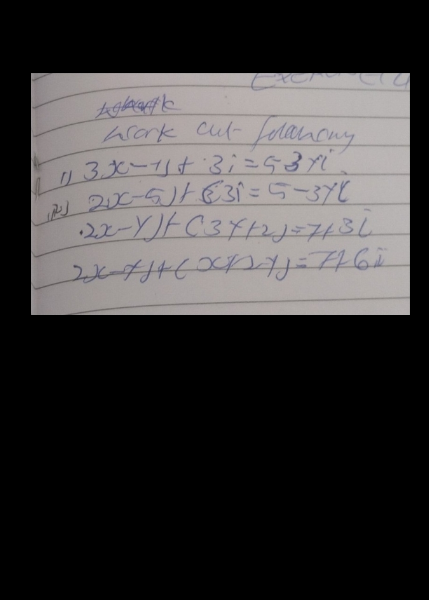 Work out following
1) 3x-1)+ 3i=5 3yi
2x-5)+ 3i=5-3yi
2x-y)+(3y+2)=7+3i
2x-y)+(x+2y)=7+6i